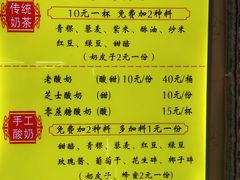 传统
奶茶
10元一杯 免费加2种料
青稞、藜麦、紫米、酥油、炒米
红豆、绿豆、甜醅
(奶皮子2元一份)
老酸奶 (酸甜) 10元/份 40元/桶
芝士酸奶 (甜) 10元/份
零蔗糖酸奶 (酸) 15元/杯
手工
酸奶
免费加2种料 多加料1元一份
甜醅、青稞、藜麦、红豆、绿豆
玫瑰酱、葡萄干、花生碎、椰子碎
(奶皮子、蜂蜜2元一份)